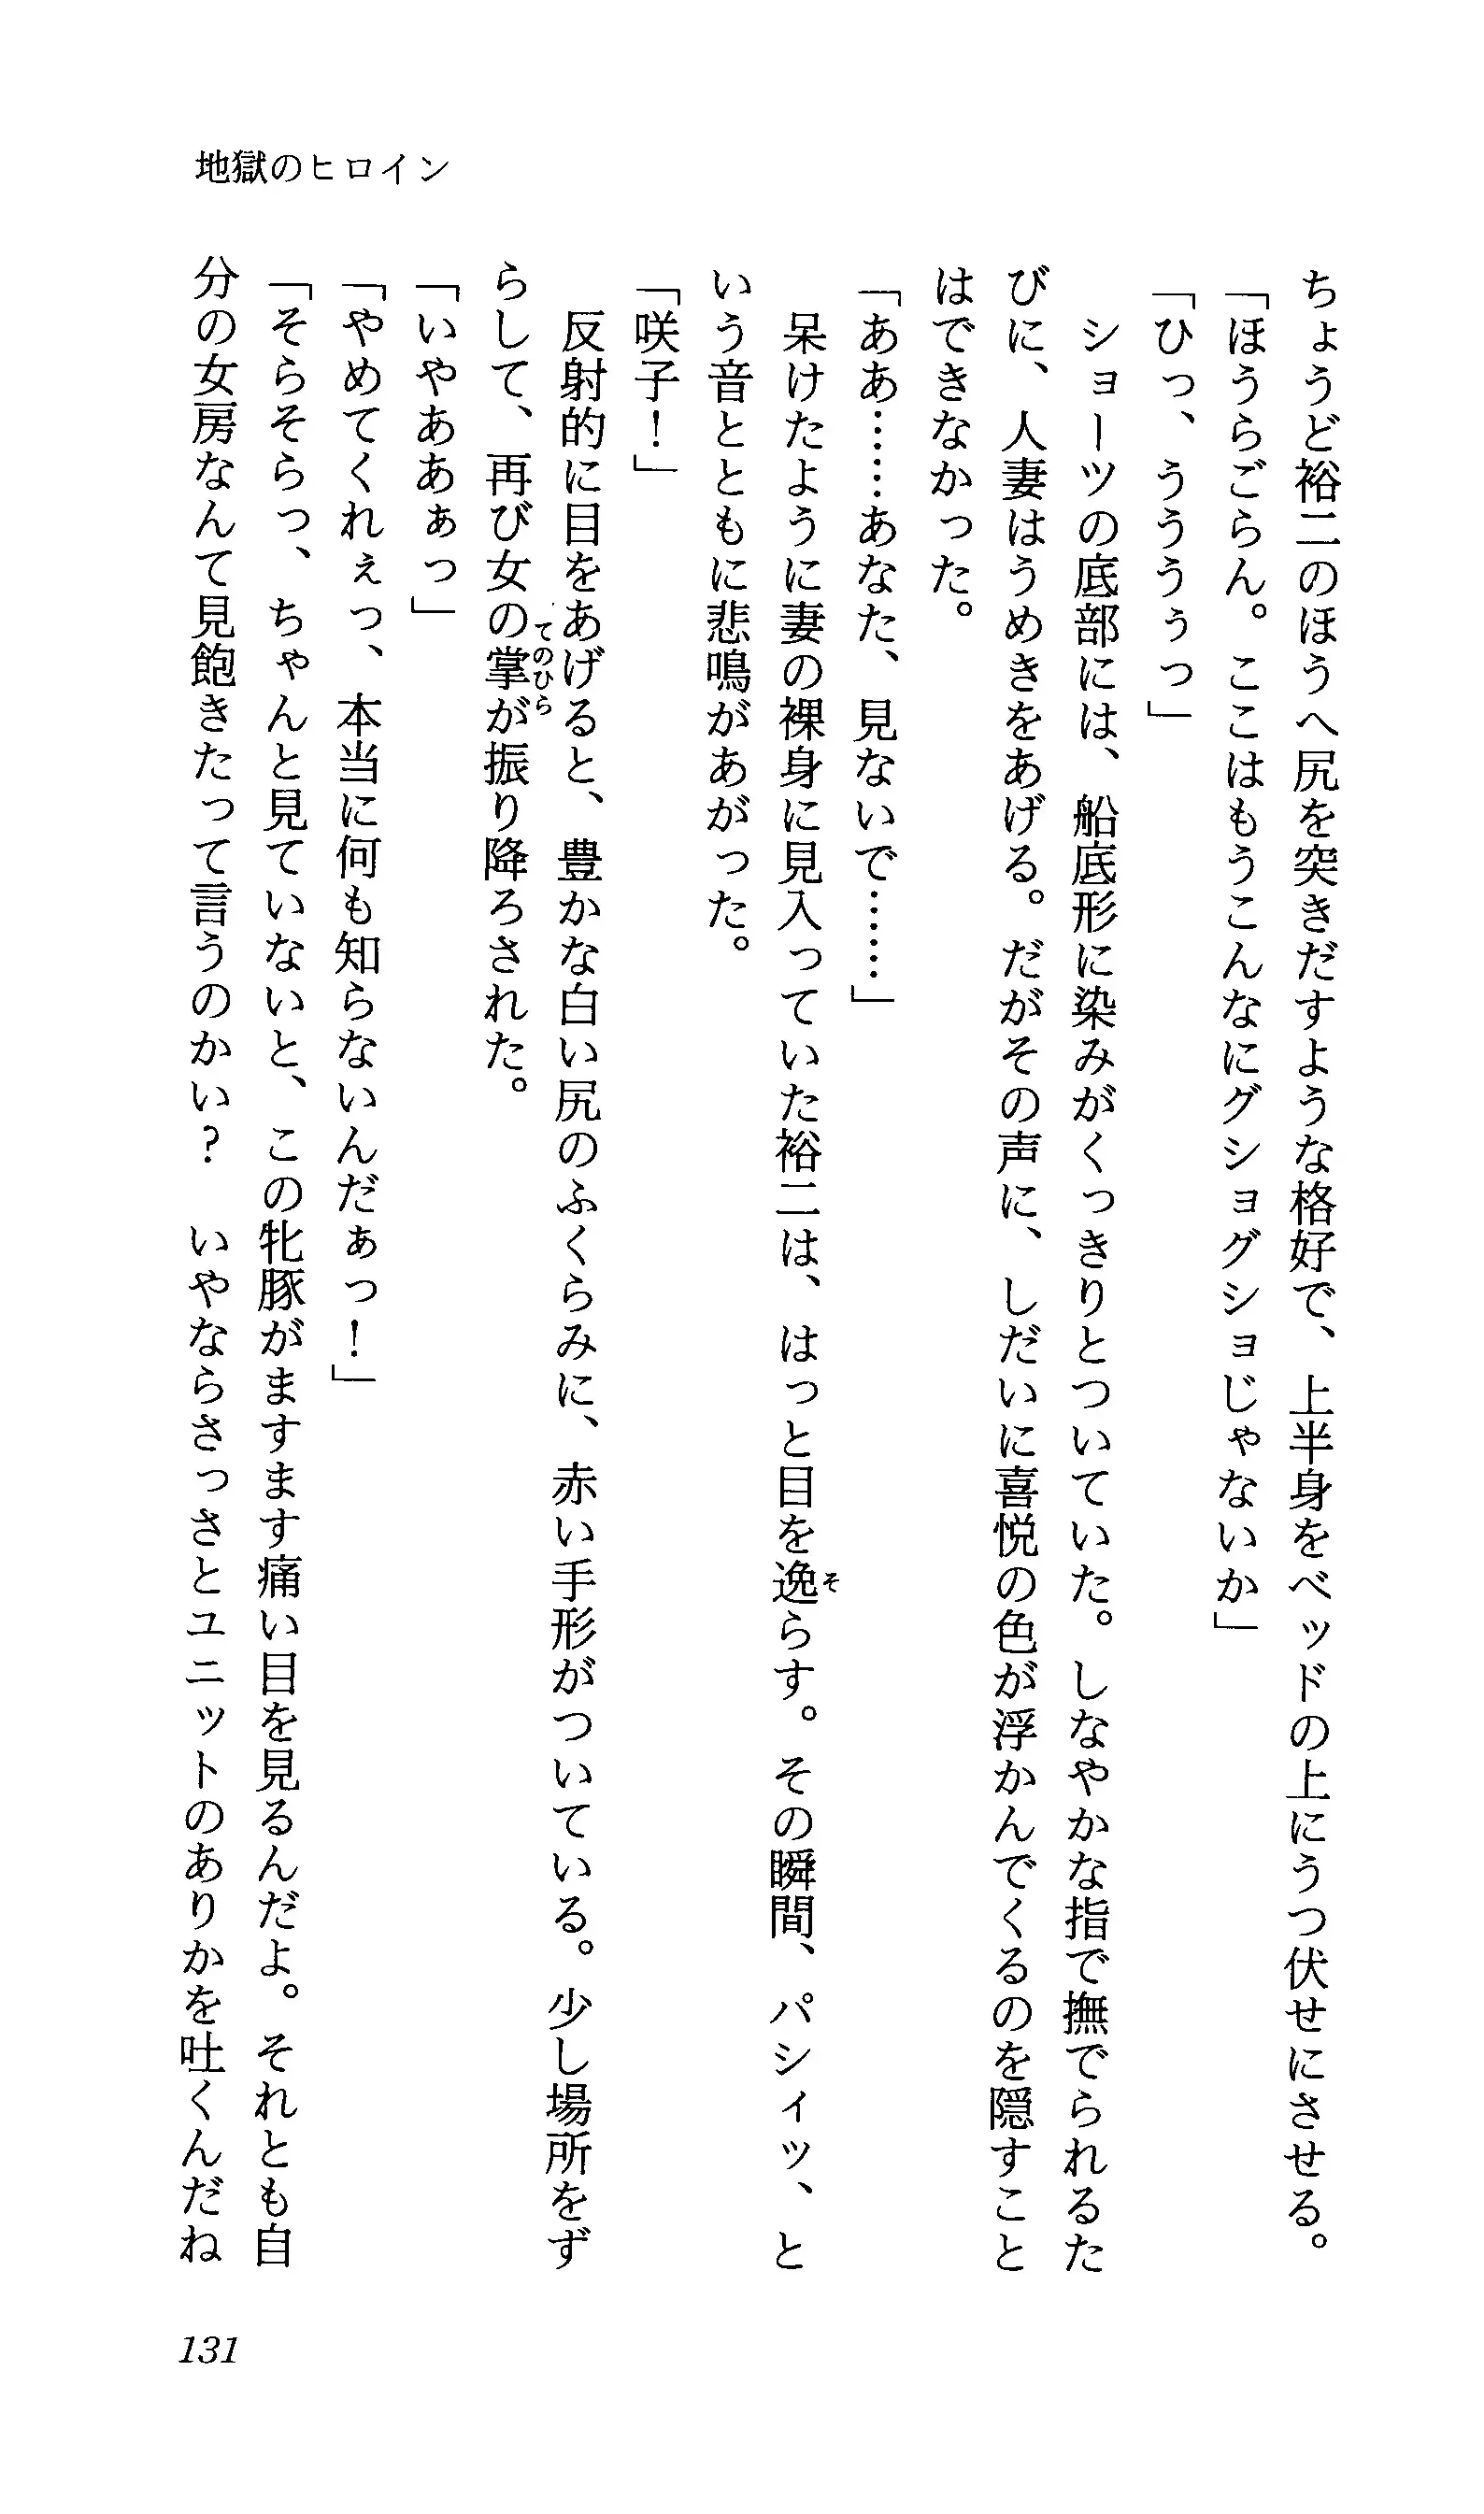 地獄のヒロイン
ちょうど裕二のほうへ尻を突きだすような格好で、上半身をベッドの上にうつ伏せにさせる。
「ほうらごらん。ここはもうこんなにグショグショじゃないか」
「ひっ、うううぅっ」
　ショーツの底部には、船底形に染みがくっきりとついていた。しなやかな指で撫でられるた
びに、人妻はうめきをあげる。だがその声に、しだいに喜悦の色が浮かんでくるのを隠すこと
はできなかった。
「ああ……あなた、見ないで……」
　呆けたように妻の裸身に見入っていた裕二は、はっと目を逸らす。その瞬間、パシィッ、と
いう音とともに悲鳴があがった。
「咲子！」
　反射的に目をあげると、豊かな白い尻のふくらみに、赤い手形がついている。少し場所をず
らして、再び女の掌が振り降ろされた。
「いやああぁっ」
「やめてくれぇっ、本当に何も知らないんだぁっ！」
「そらそらっ、ちゃんと見ていないと、この牝豚がますます痛い目を見るんだよ。それとも自
分の女房なんて見飽きたって言うのかい？　いやならさっさとユニットのありかを吐くんだね
131